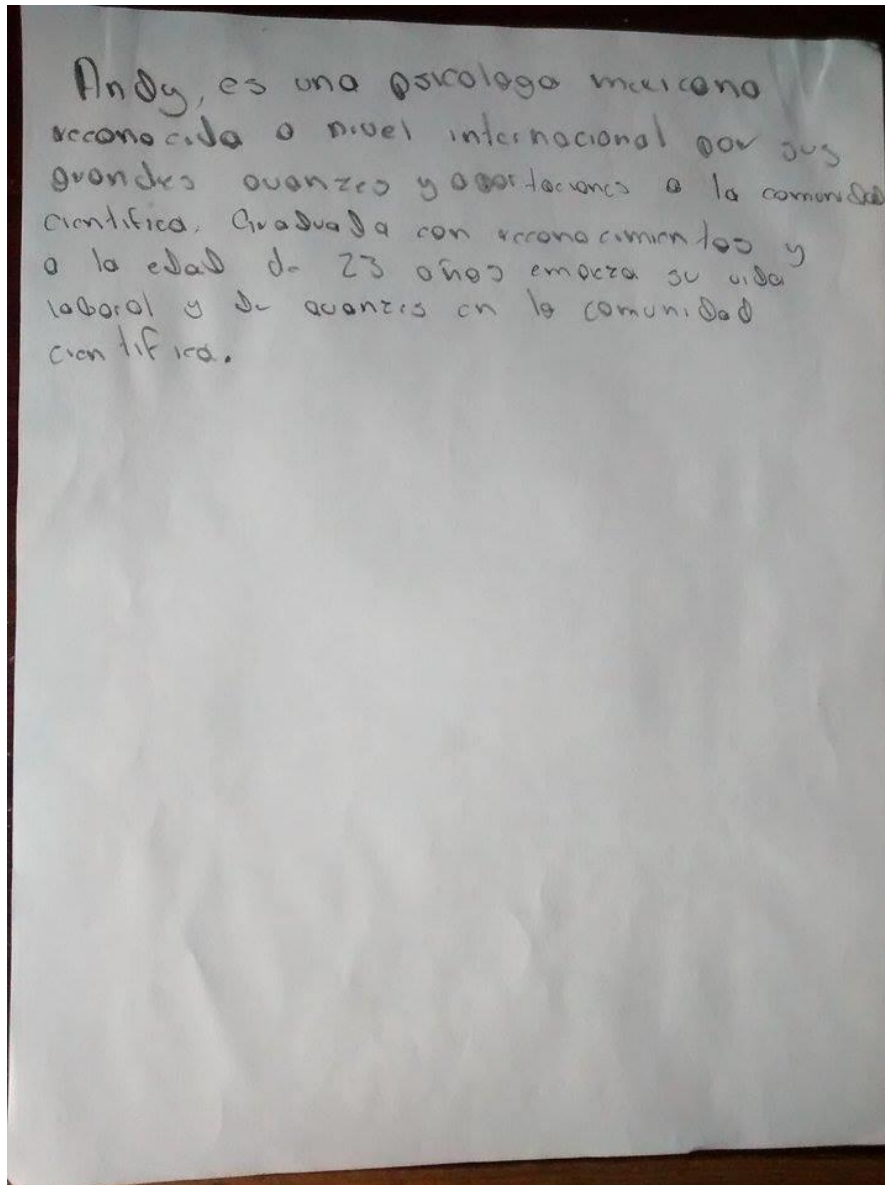 Andy, es una psicologa mexicana
reconocida a nivel internacional por sus
grandes avanzes y aportaciones a la comunidad
cientifica. Graduada con reconocimientos y
a la edad de 23 años empieza su vida
laboral y de avanzes en la comunidad
cientifica.